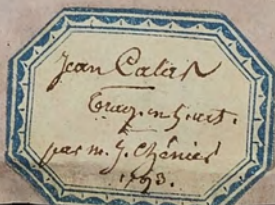 Jean Calas
Trag. en 5 act.
par m. J. Chénier
1793.